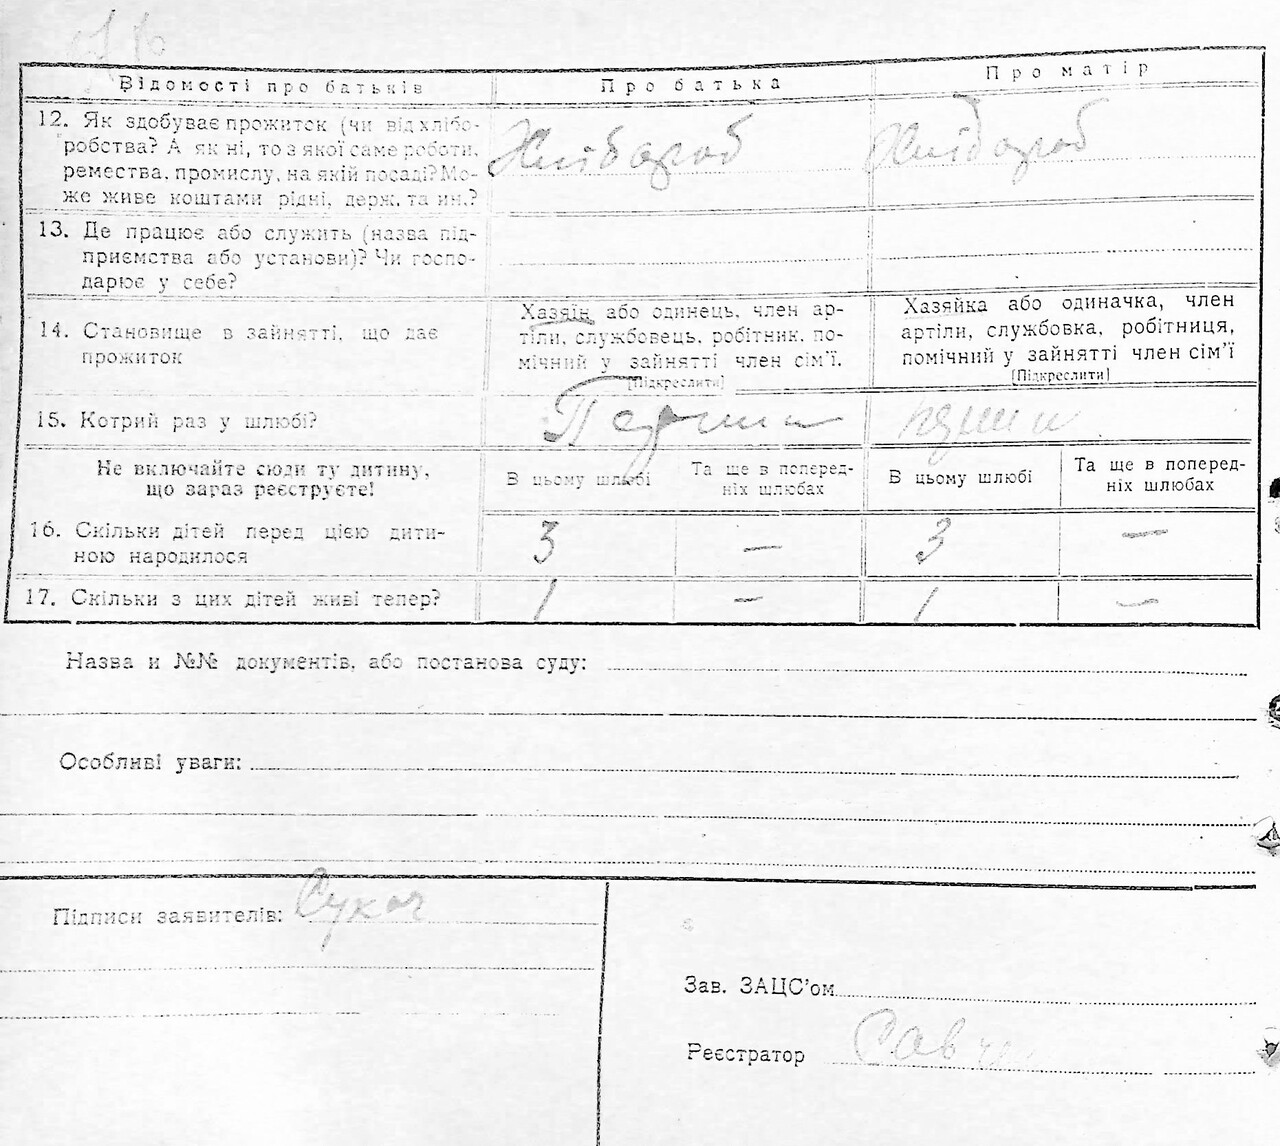 Відомості про батьків Про батька Про матір
12. Як здобуває прожиток (чи від хлібо-
робства? А як ні, то з якої саме роботи,
ремества, промислу, на якій посаді? Мо-
же живе коштами рідні, держ. та ин.?
Хлібороб Хлібороб
13. Де працює або служить (назва під-
приємства або установи)? Чи госпо-
дарює у себе?
14. Становище в зайнятті, що дає
прожиток
Хазяїн або одинець, член ар-
тіли, службовець, робітник, по-
мічний у зайнятті член сім'ї.
[Підкреслити]
Хазяйка або одиначка, член
артіли, службовка, робітниця,
помічний у зайнятті член сім'ї
[Підкреслити]
15. Котрий раз у шлюбі?
Не включайте сюди ту дитину,
що зараз реєструєте!
В цьому шлюбі
Та ще в поперед-
ніх шлюбах
В цьому шлюбі
Та ще в поперед-
ніх шлюбах
16. Скільки дітей перед цією дити-
ною народилося
3 — 3 —
17. Скільки з цих дітей живі тепер? 1 — 1 —
Назва и №№ документів, або постанова суду:
Особливі уваги:
Підписи заявителів: Сукач
Зав. ЗАЦС'ом
Реєстратор